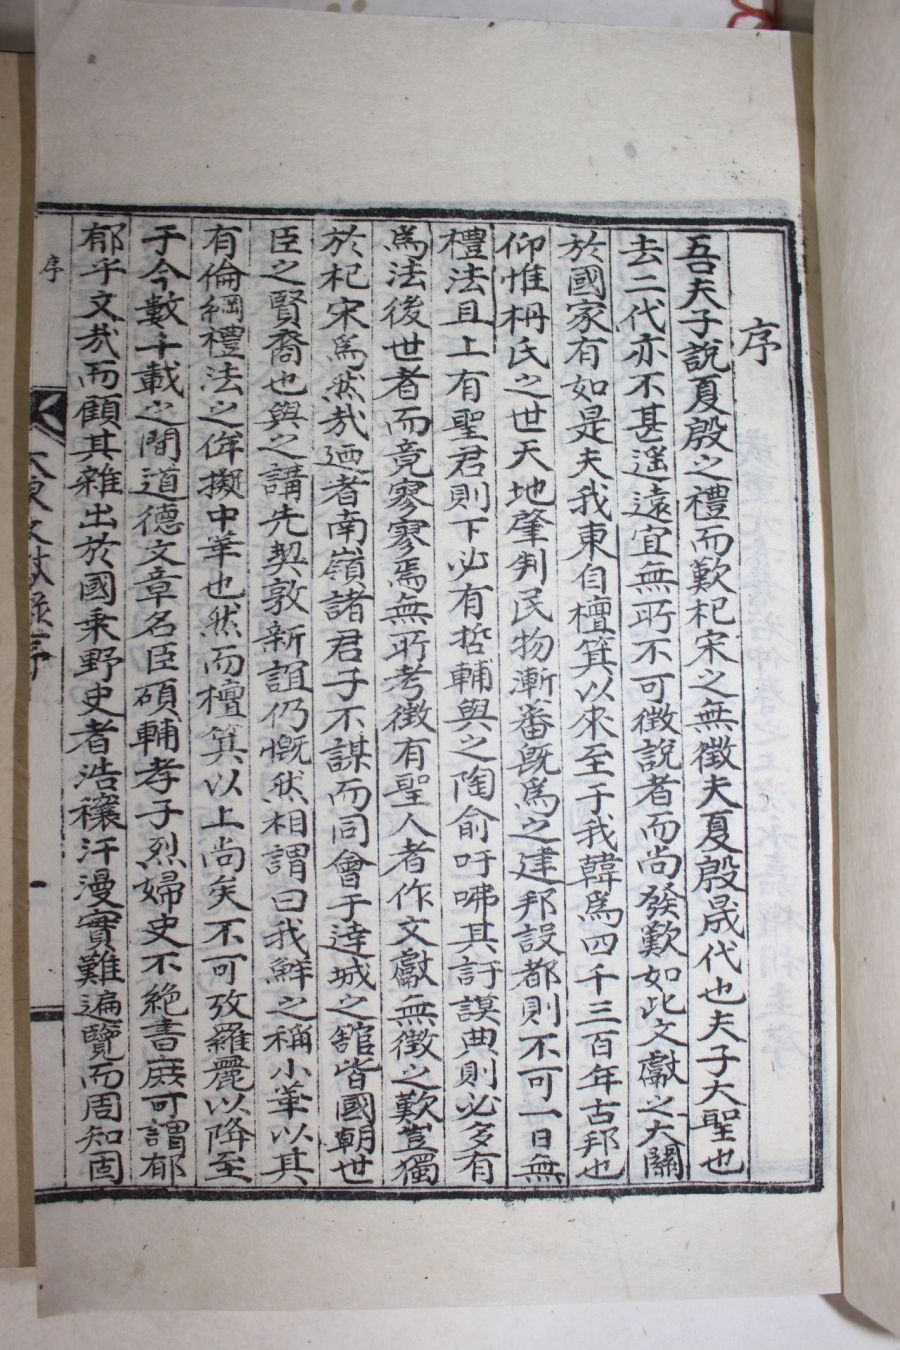 序
吾夫子說夏殷之禮而歎杞宋之無徵夫夏殷晟代也夫子大聖也
去二代亦不甚遥遠宜無所不可徵說者而尚發歎如此文獻之大關
於國家有如是夫我東自檀箕以來至于我韓爲四千三百年古邦也
仰惟柟氏之世天地肇判民物漸蕃旣爲之建邦設都則不可一日無
禮法且上有聖君則下必有哲輔與之陶俞吁咈其訏謨典則必多有
爲法後世者而竟寥寥焉無所考徵有聖人者作文獻無徵之歎豈獨
於杞宋爲然㦲迺者南嶺諸君子不謀而同會于逹城之舘皆國朝世
臣之賢裔也與之講先契敦新誼仍慨然相謂曰我鮮之稱小華以其
有倫綱禮法之侔擬中華也然而檀箕以上尚矣不可攷羅麗以降至
于今數千載之間道德文章名臣碩輔孝子烈婦史不絶書庶可謂郁
郁乎文㦲而顧其雜出於國乘野史者浩穰汗漫實難遍覽而周知固
序
大東文獻錄序
一